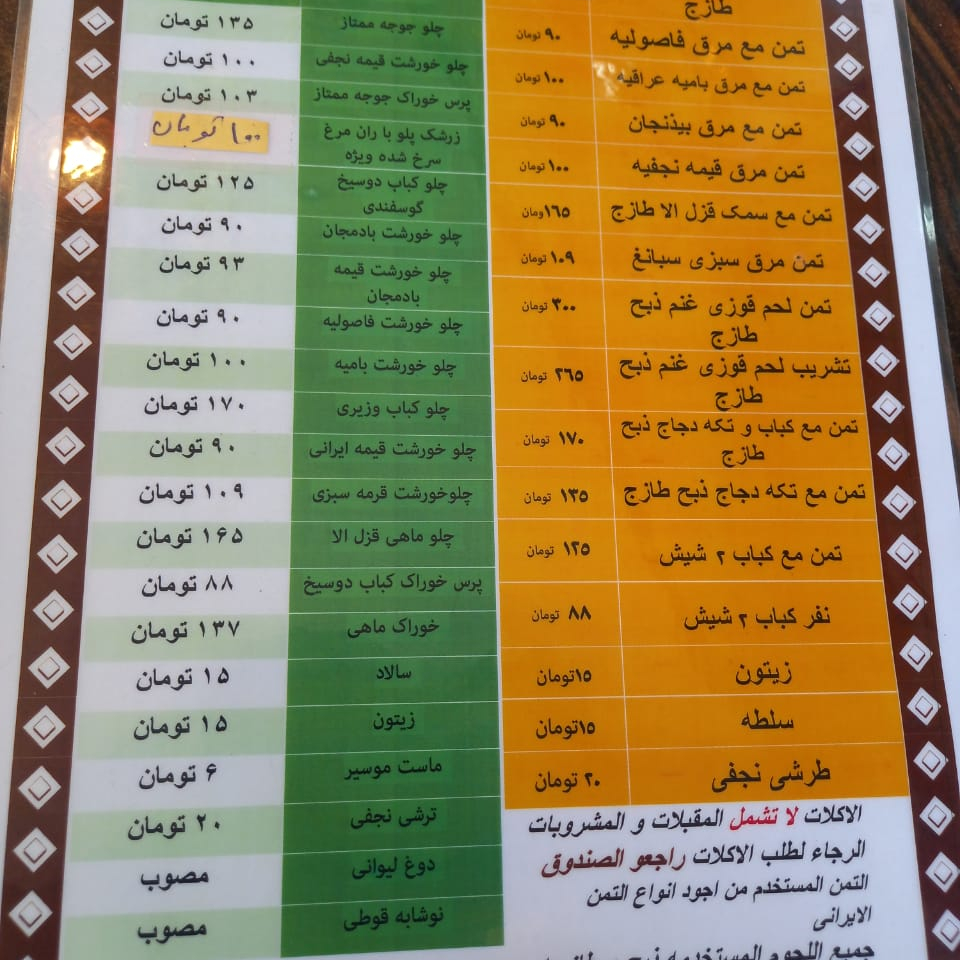 طازج
تمن مع مرق فاصولیه ۹۰ تومان
تمن مع مرق بامیه عراقیه ۱۰۰ تومان
تمن مع مرق بیذنجان ۹۰ تومان
تمن مرق قیمه نجفیه ۱۰۰ تومان
تمن مع سمک قزل الا طازج ۱۶۵ومان
تمن مرق سبزی سبانغ ۱۰۹ تومان
تمن لحم قوزی غنم ذبح ۳۰۰ تومان
طازج
تشریب لحم قوزی غنم ذبح ۲۶۵ تومان
طازج
تمن مع کباب و تکه دجاج ذبح ۱۷۰ تومان
طازج
تمن مع تکه دجاج ذبح طازج ۱۳۵ تومان
تمن مع کباب ۲ شیش ۱۲۵ تومان
نفر کباب ۲ شیش ۸۸ تومان
زیتون ۱۵تومان
سلطه ۱۵تومان
طرشی نجفی ۲۰ تومان
الاکلات لا تشمل المقبلات و المشروبات
الرجاء لطلب الاکلات راجعو الصندوق
التمن المستخدم من اجود انواع التمن
الایرانی
جمیع اللحوم المستخدمه ذبح
چلو جوجه ممتاز ۱۳۵ تومان
چلو خورشت قیمه نجفی ۱۰۰ تومان
پرس خوراک جوجه ممتاز ۱۰۳ تومان
زرشک پلو با ران مرغ ۱۰۰ تومان
سرخ شده ویژه
چلو کباب دوسیخ ۱۲۵ تومان
گوسفندی
چلو خورشت بادمجان ۹۰ تومان
چلو خورشت قیمه ۹۳ تومان
بادمجان
چلو خورشت فاصولیه ۹۰ تومان
چلو خورشت بامیه ۱۰۰ تومان
چلو کباب وزیری ۱۷۰ تومان
چلو خورشت قیمه ایرانی ۹۰ تومان
چلوخورشت قرمه سبزی ۱۰۹ تومان
چلو ماهی قزل الا ۱۶۵ تومان
پرس خوراک کباب دوسیخ ۸۸ تومان
خوراک ماهی ۱۳۷ تومان
سالاد ۱۵ تومان
زیتون ۱۵ تومان
ماست موسیر ۶ تومان
ترشی نجفی ۲۰ تومان
دوغ لیوانی مصوب
نوشابه قوطی مصوب